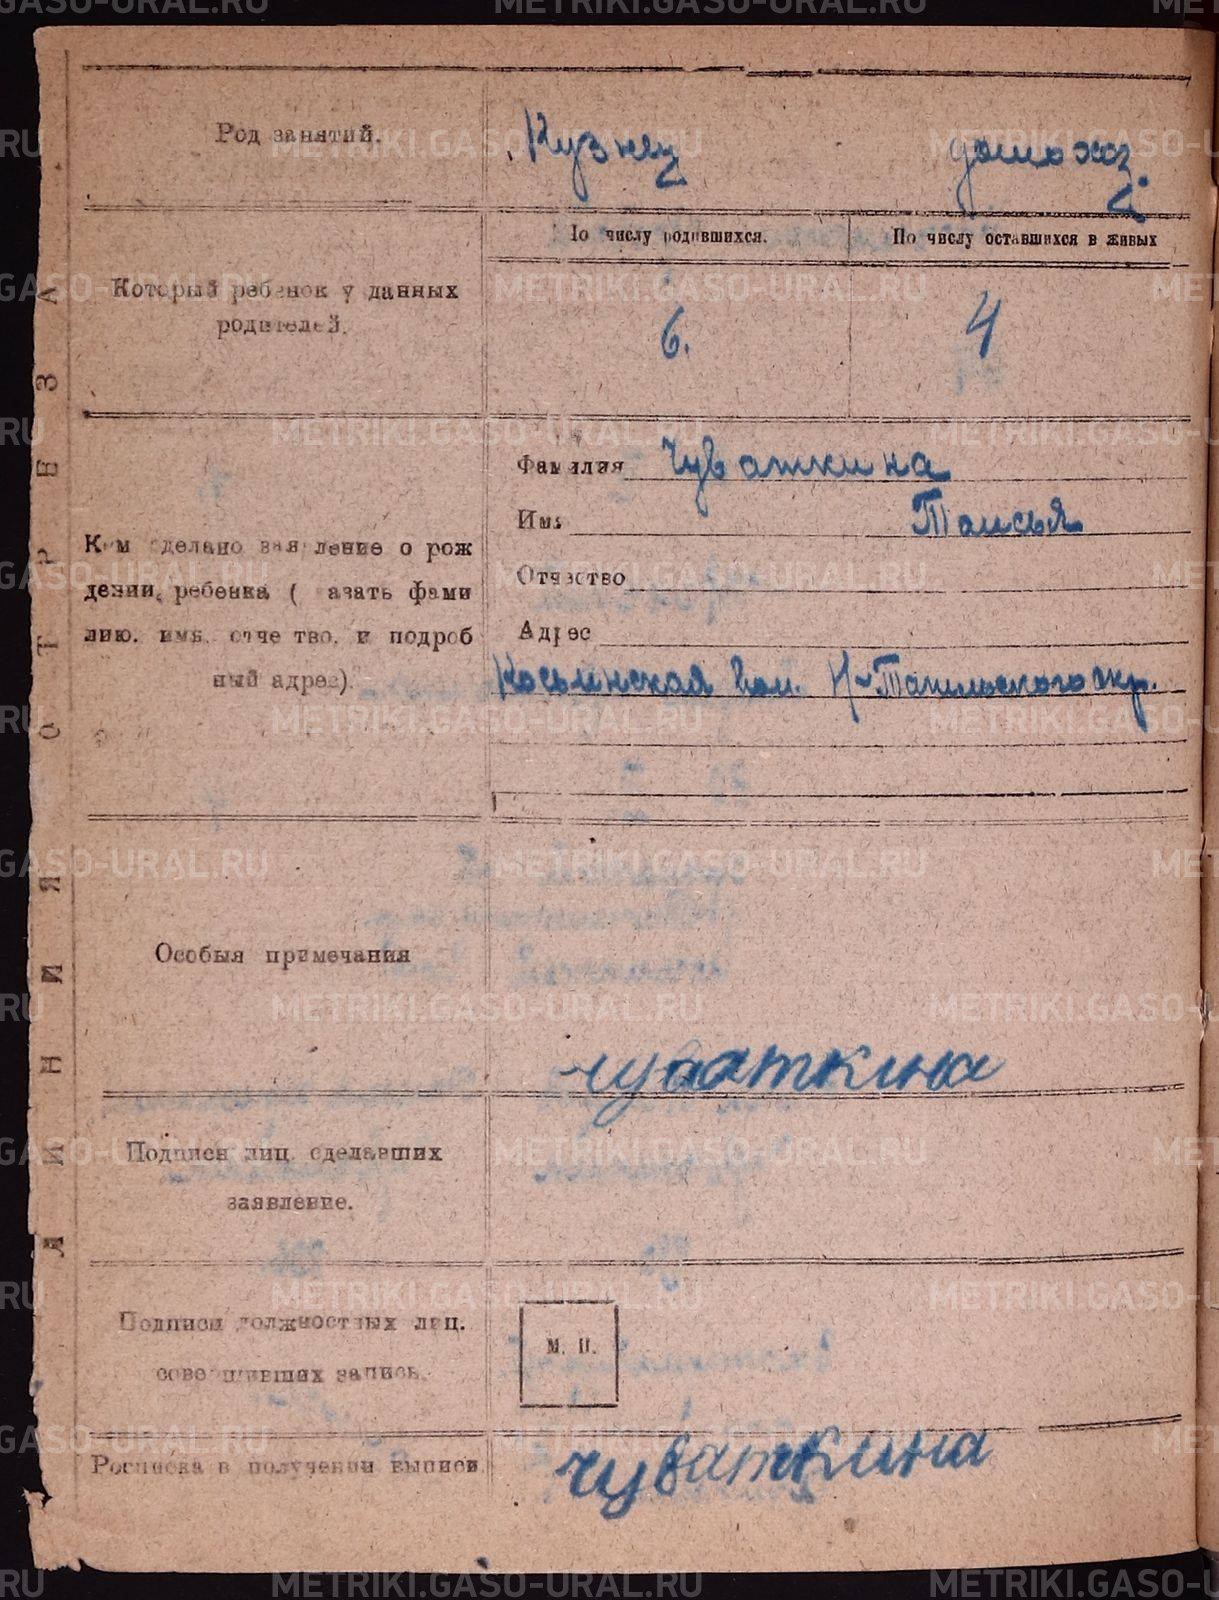 Род занятий.
Кузнец
домохоз.
По числу родившихся.
По числу оставшихся в живых
Который ребенок у данных
родителей.
6.
4
Фамилия Чуваткина
Имя Таисья
Отчество
Адрес
Кем сделано заявление о рож
дении, ребенка ( азать фами
лию. имя. отче тво. и подроб
ный адрес).
Косьинская вол. Н-Тагильского окр.
Особыя примечания
Чуваткина
Подписи лиц. сделавших
заявление.
Подписи должностных лиц.
совершивших запись.
М. П.
Росписка в получении выписи
Чуваткина
ЛИНИЯ ОТРЕЗА.
METRIKI.GASO-URAL.RU